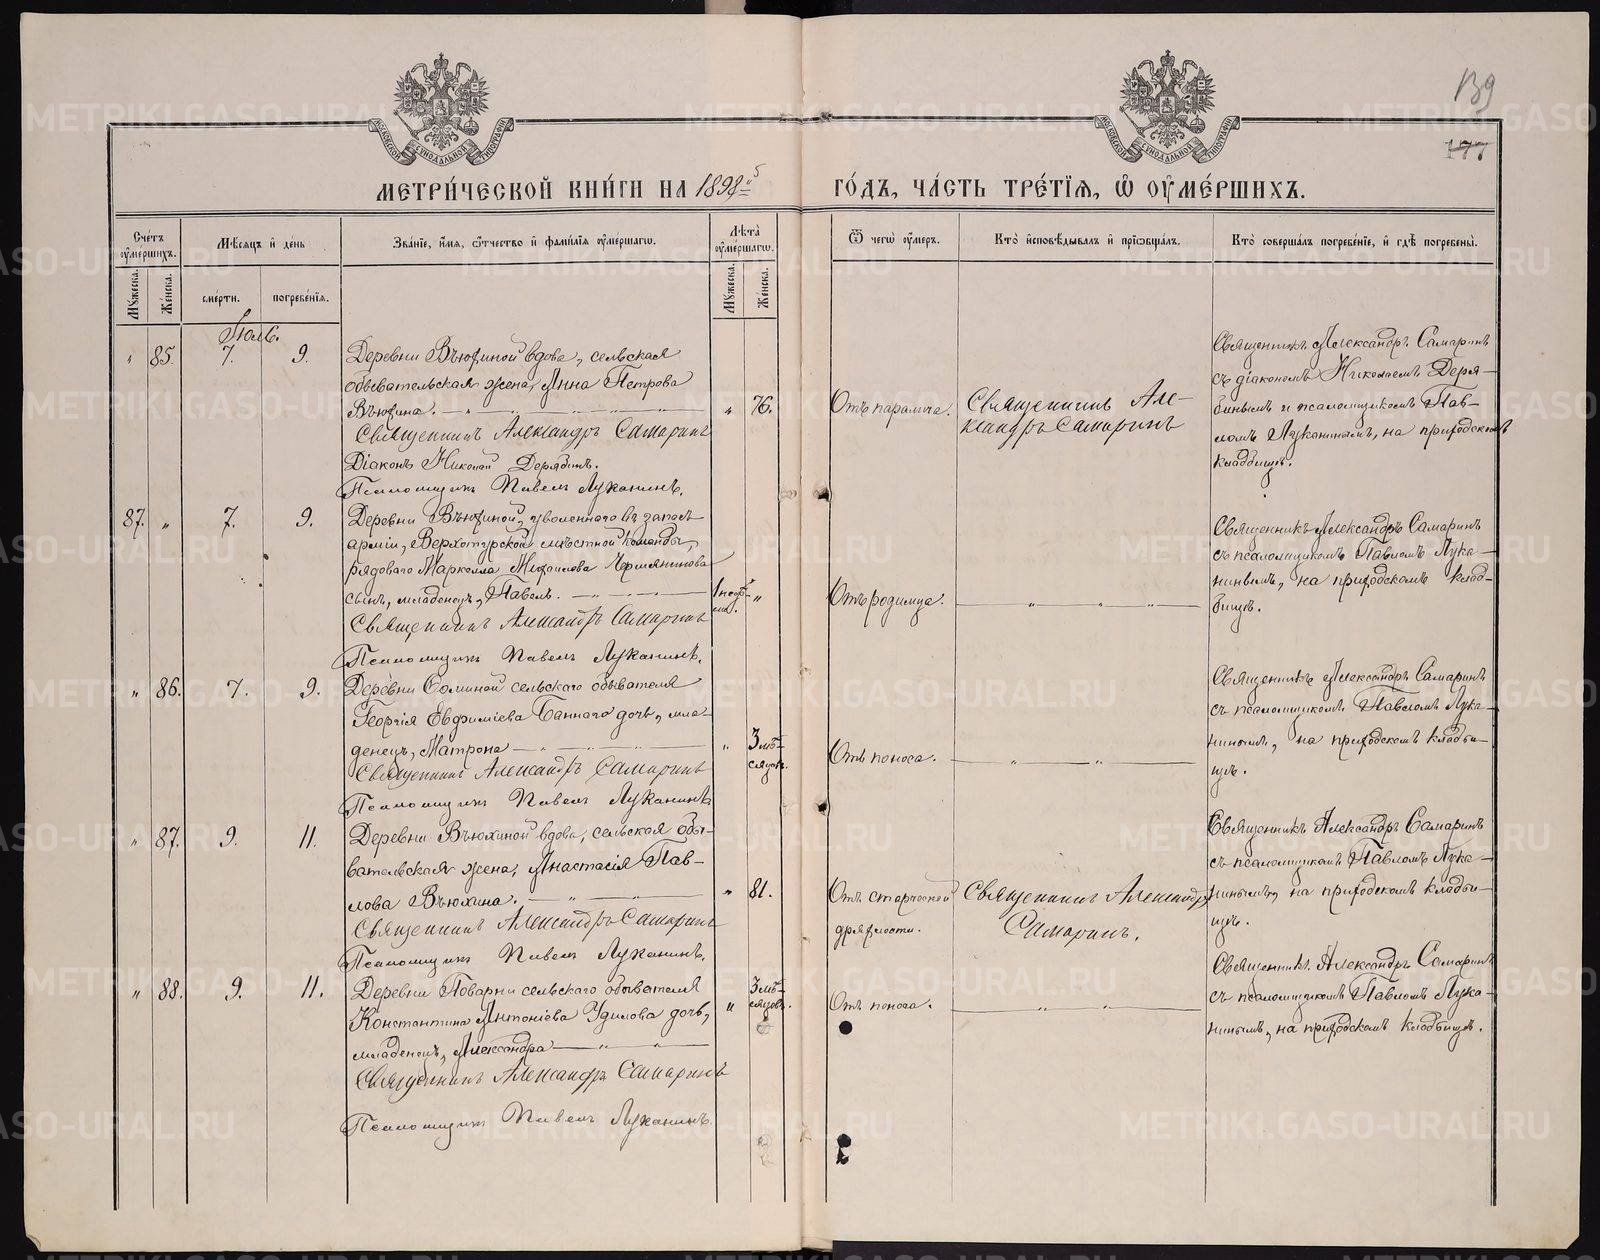 139
177
МОСКОВСКОЙ СѴНОДАЛЬНОЙ ТИПОГРАФІИ
МОСКОВСКОЙ СѴНОДАЛЬНОЙ ТИПОГРАФІИ
МЕТРИ́ЧЕСКОЙ КНИ́ГИ НА 1898й
ГО́ДЪ, ЧА́СТЬ ТРЕ́ТІѦ, Ѿ ОУМЕ́РШИХЪ.
Сче́тъ оуме́ршихъ.
Мꙋ́жеска.
Же́нска.
Мѣ́сѧцъ и де́нь
сме́рти.
погребе́нїѧ.
Зва́нїе, и́мѧ, ѻ҆́тчество и фами́лїѧ оуме́ршагѡ.
Лѣ́та оуме́ршагѡ.
Мꙋ́жеска.
Же́нска.
Ѿ чегѡ̀ оу́меръ.
Кто̀ и҆сповѣ́дывалъ и҆ прїѡбща́лъ.
Кто̀ соверша́лъ погребе́нїе, и҆ гдѣ̀ погребены̀.
Іюль.
" 85. 7. 9.
Деревни Вьюхиной вдова, сельская
обывательская жена, Анна Петрова
Вьюхина. " 76.
Священникъ Александръ Самаринъ
Діаконъ Николай Дерябинъ.
Псаломщикъ Павелъ Луканинъ.
Отъ паралича.
Священникъ Але-
ксандръ Самаринъ
Священникъ Александръ Самаринъ
съ діакономъ Николаемъ Деря-
бинымъ и псаломщикомъ Пав-
ломъ Луканинымъ, на приходскомъ
кладбищѣ.
87. " 7. 9.
Деревни Вьюхиной, уволеннаго въ запасъ
арміи, Верхотурской мѣстной команды,
рядоваго Маркелла Михайлова Чермянинова
сынъ, младенецъ, Павелъ. 1 недѣ- "
ли.
Священникъ Александръ Самаринъ
Псаломщикъ Павелъ Луканинъ.
Отъ родимца.
Священникъ Александръ Самаринъ
съ псаломщикомъ Павломъ Лука-
нинымъ, на приходскомъ клад-
бищѣ.
" 86. 7. 9.
Деревни Соминой сельскаго обывателя
Георгія Евфиміева Баннаго дочь, мла-
денецъ, Матрона " 3 мѣ-
сяцовъ.
Священникъ Александръ Самаринъ
Псаломщикъ Павелъ Луканинъ
Отъ поноса.
Священникъ Александръ Самаринъ
съ псаломщикомъ Павломъ Лука-
нинымъ, на приходскомъ кладби-
щѣ.
" 87. 9. 11.
Деревни Вьюхиной вдова, сельская обы-
вательская жена, Анастасія Пав-
лова Вьюхина. " 81.
Священникъ Александръ Самаринъ
Псаломщикъ Павелъ Луканинъ.
Отъ старческой
дряхлости.
Священникъ Александръ
Самаринъ.
Священникъ Александръ Самаринъ
съ псаломщикомъ Павломъ Лука-
нинымъ, на приходскомъ кладби-
щѣ.
" 88. 9. 11.
Деревни Поварни сельскаго обывателя
Константина Антоніева Удилова дочь,
младенецъ, Александра " 3 мѣ-
сяцовъ.
Священникъ Александръ Самаринъ
Псаломщикъ Павелъ Луканинъ.
Отъ поноса.
Священникъ Александръ Самаринъ
съ псаломщикомъ Павломъ Лука-
нинымъ, на приходскомъ кладбищѣ.
METRIKI.GASO-URAL.RU